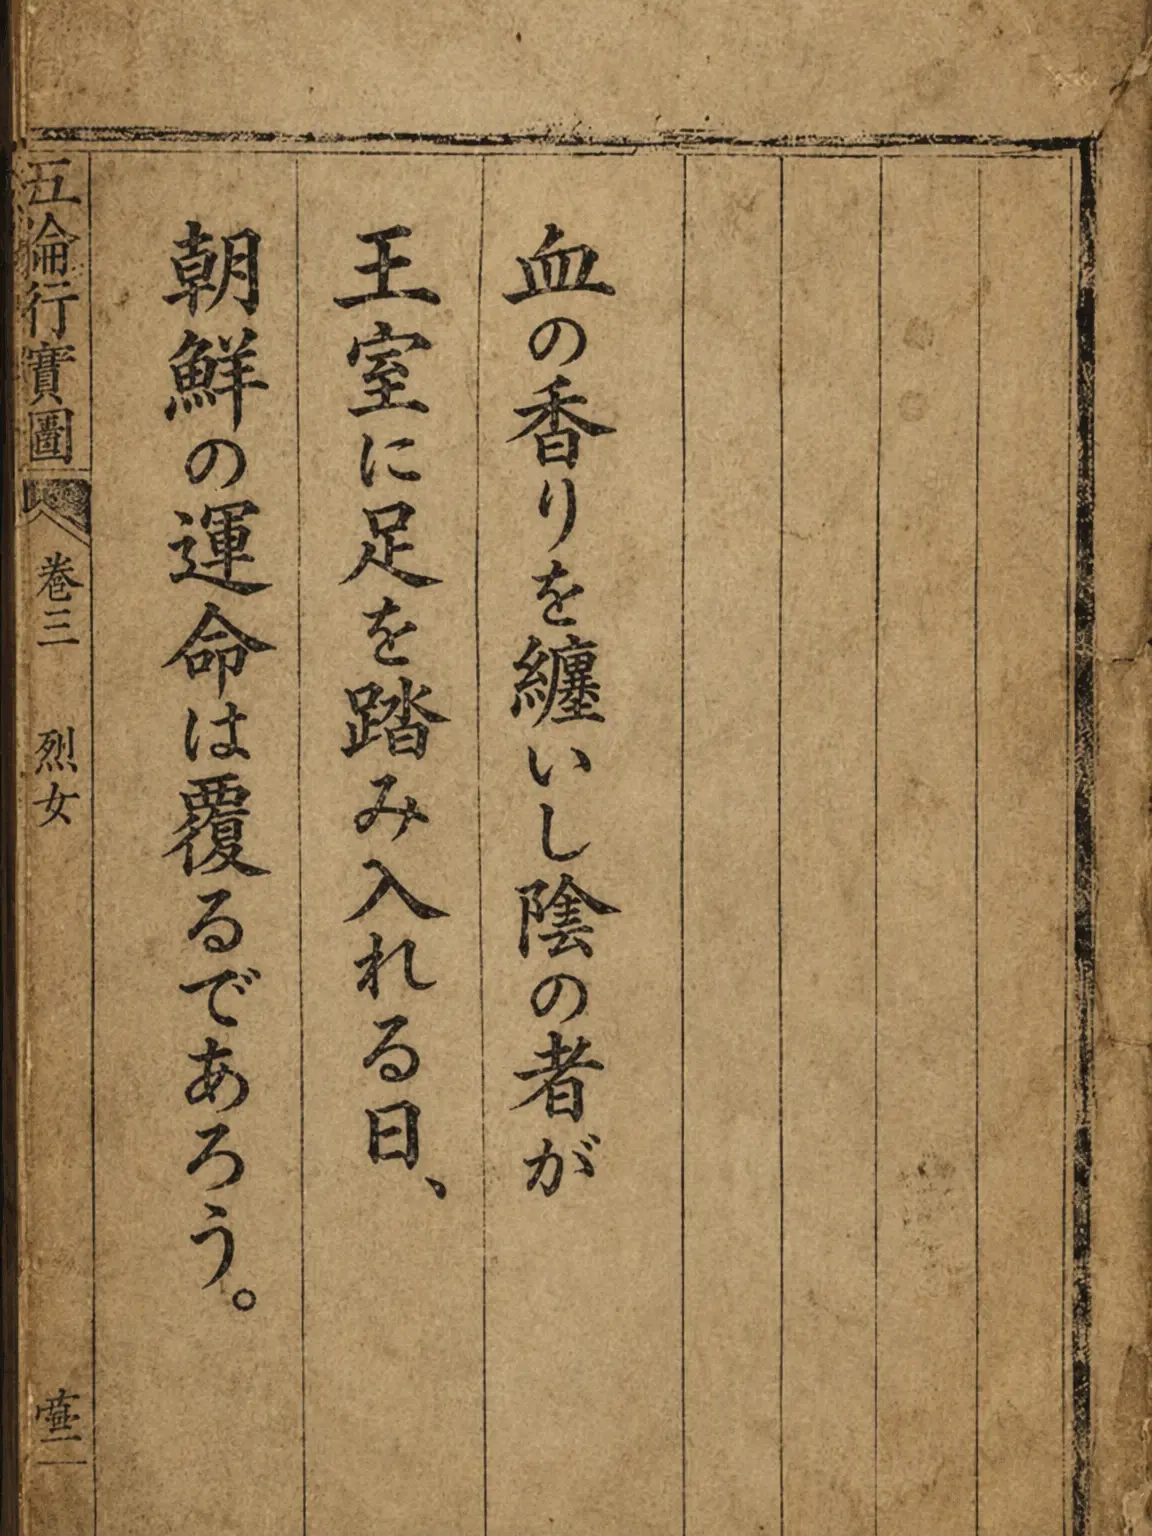 血の香りを纏いし陰の者が
王室に足を踏み入れる日、
朝鮮の運命は覆るであろう。
五倫行實圖
巻三
烈女